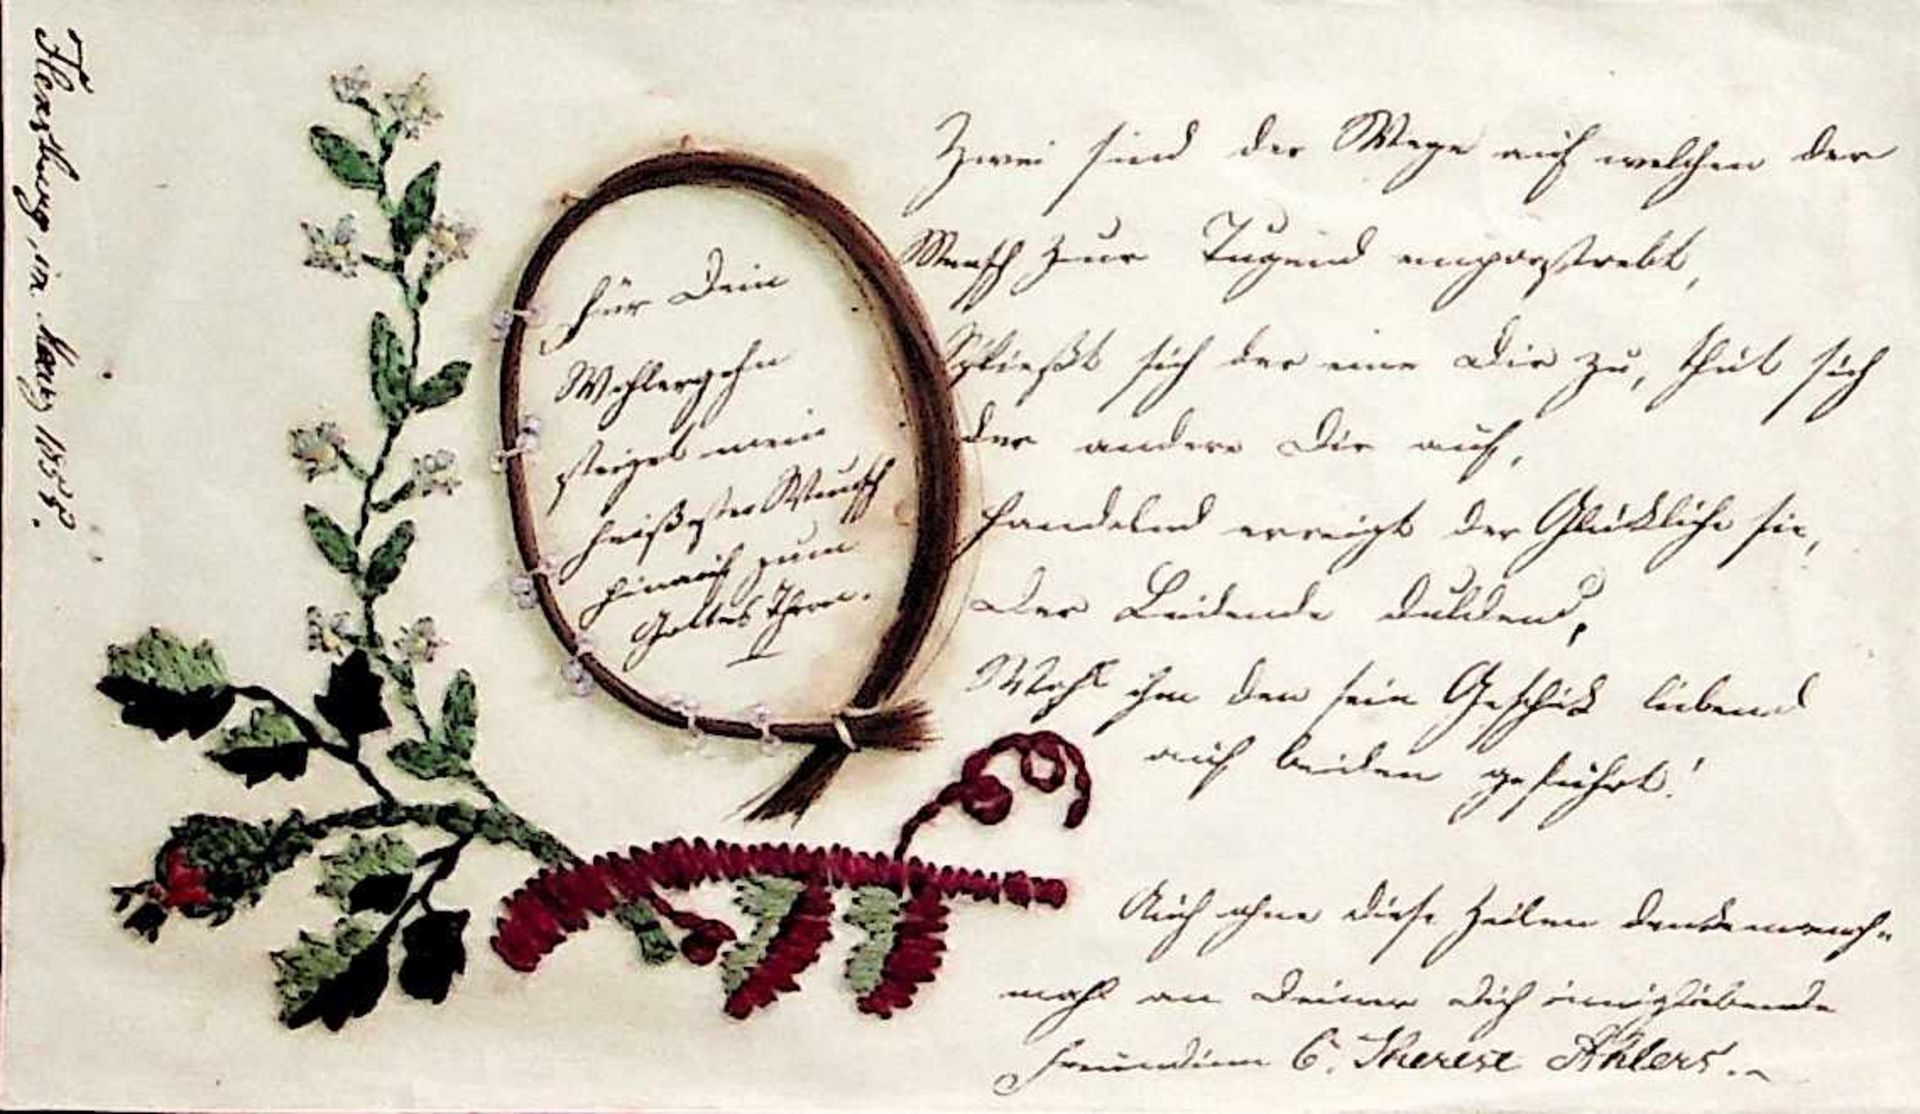 Flensburg, im März 185
Für Dein
Wohlergehn
steiget mein
heißester Wunsch
hinauf zum
Gottes Thron.
Zwei sind der Wege auf welchen der
Mensch zur Tugend emporstrebt,
Schließt sich der eine Dir zu, thut sich
der andere Dir auf,
Handelnd erreicht der Glückliche sie,
Der Leidende duldend,
Wohl ihm den sein Geschick liebend
auf beiden geführt!
Auch ohne diese Zeilen denke manch-
mahl an Deiner Dich inniglibende
Freundinn C. Therese Ahlers.